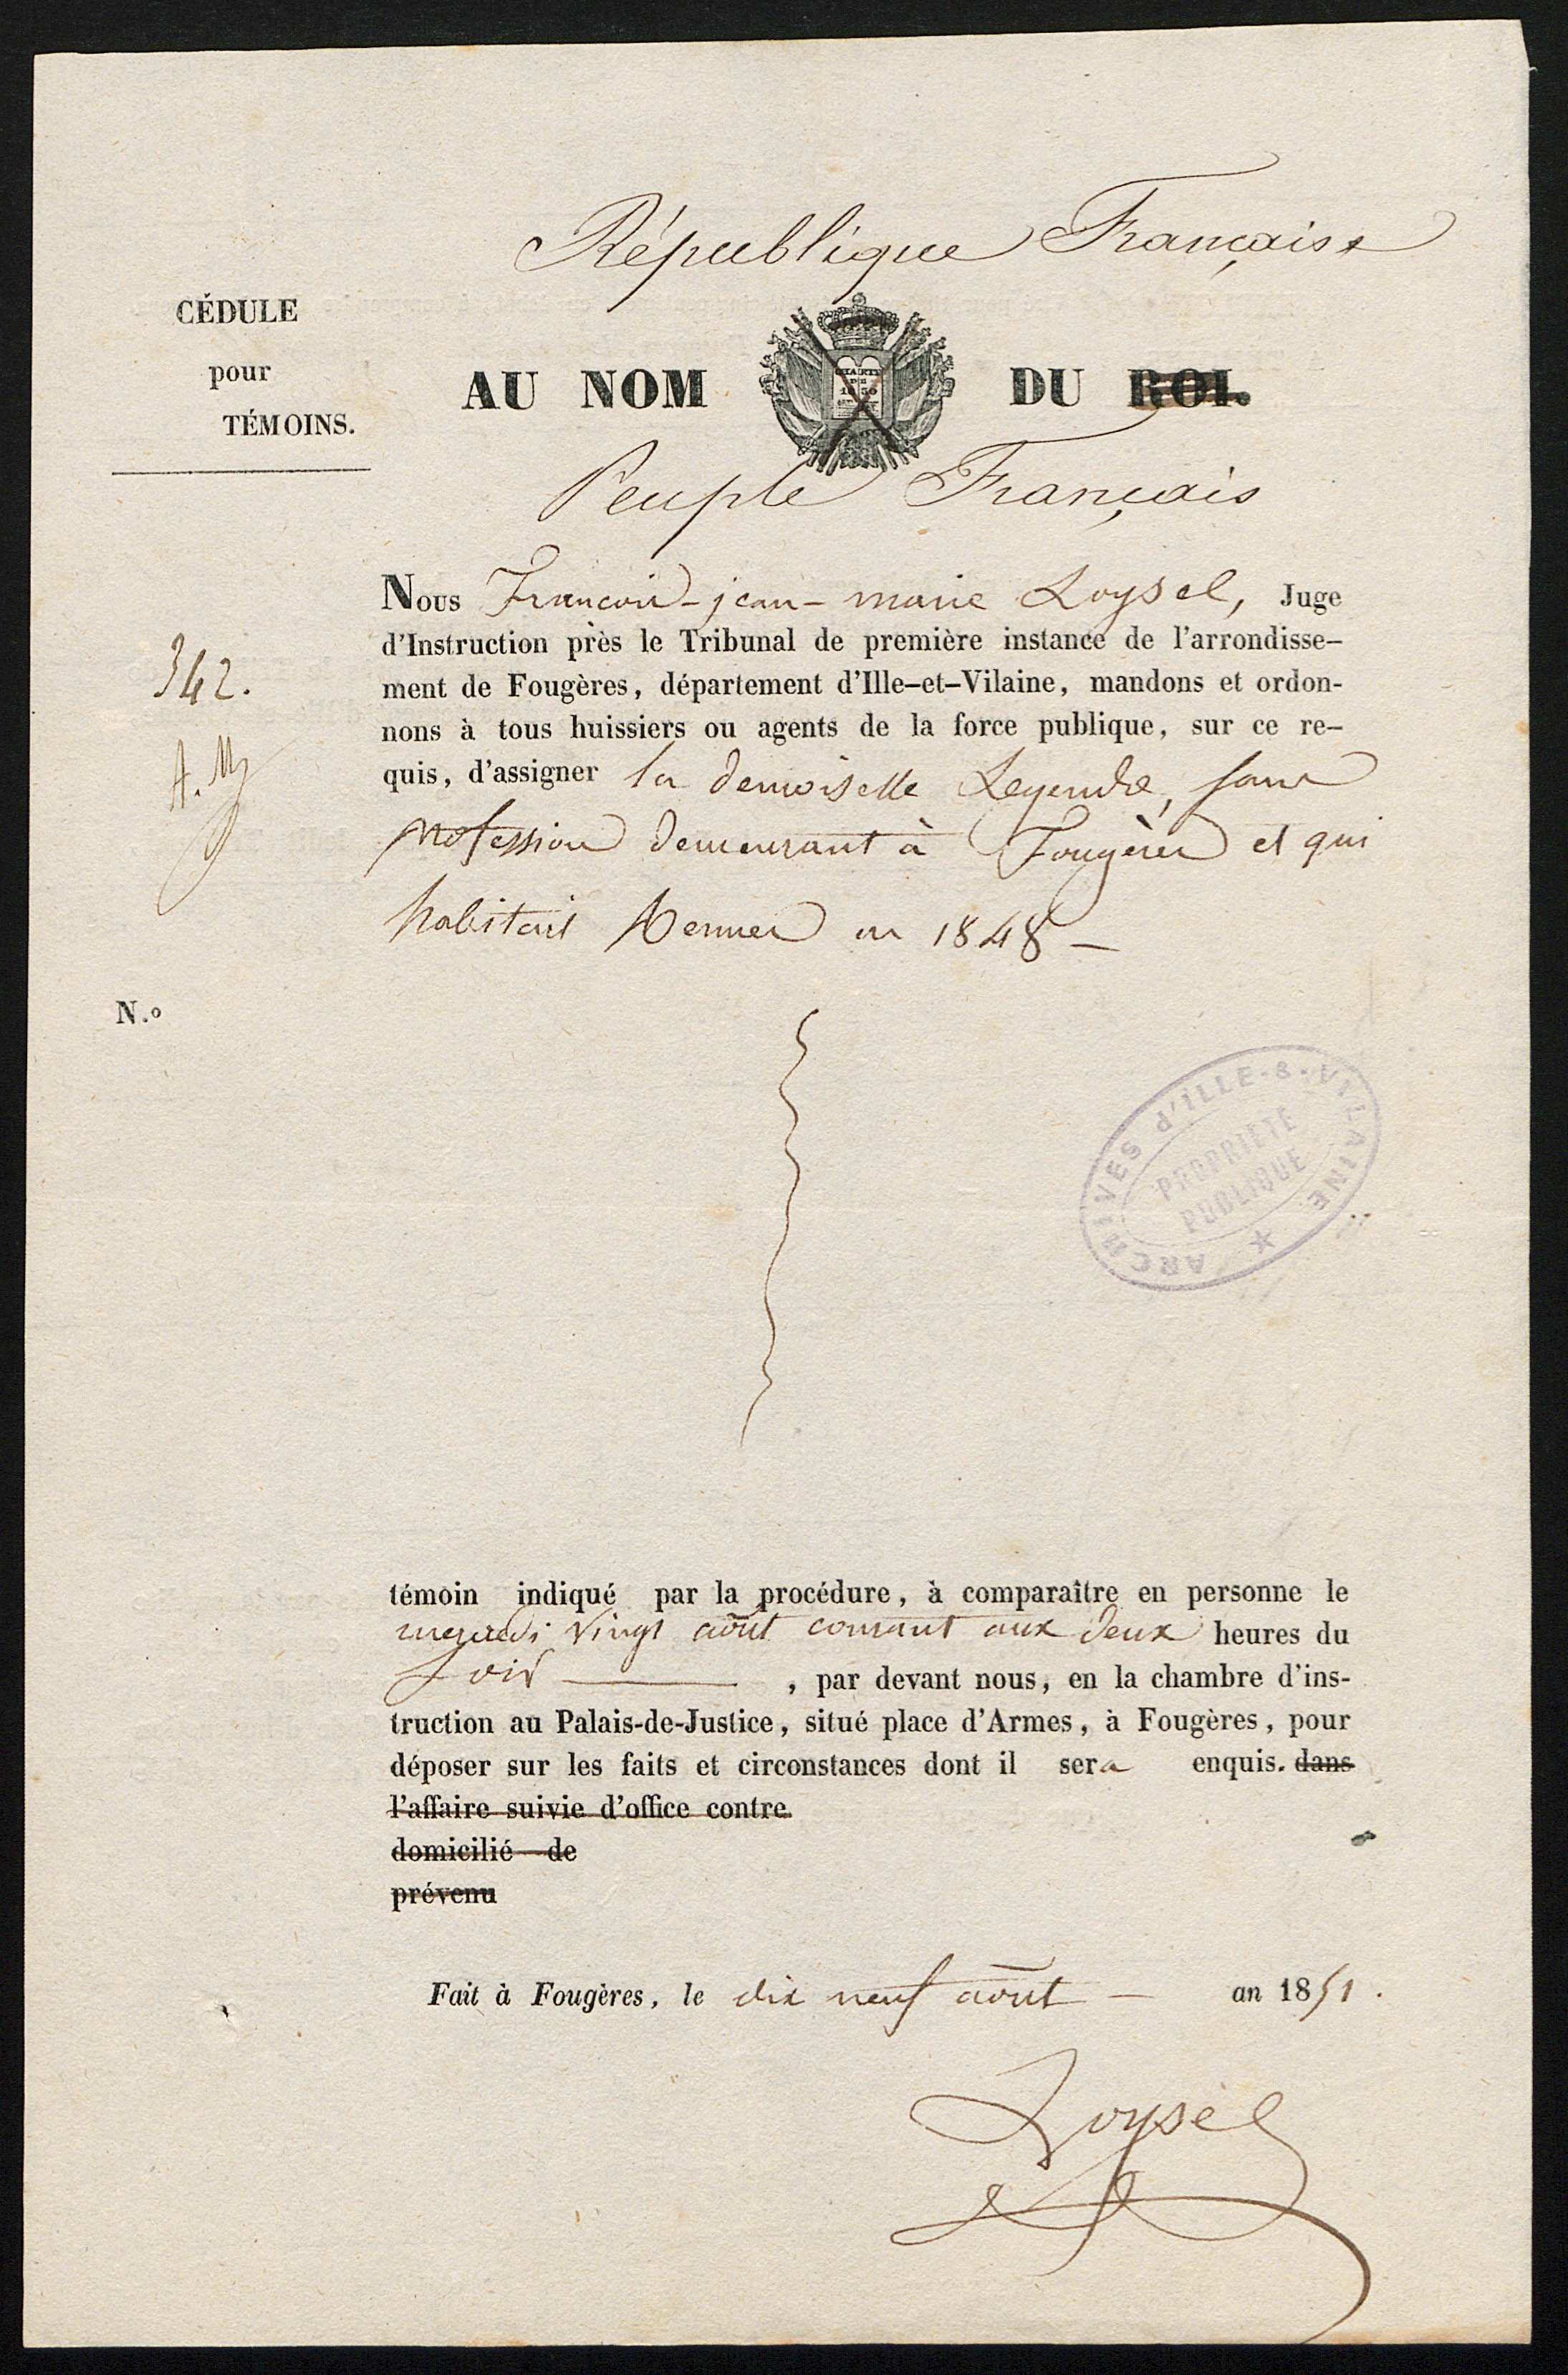 République Française
CÉDULE
pour
TÉMOINS.
AU NOM DU ROI.
CHARTE
DE
1830
Peuple Français
Nous François-jean-marie Loysel, Juge
d'Instruction près le Tribunal de première instance de l'arrondisse-
ment de Fougères, département d'Ille-et-Vilaine, mandons et ordon-
342.
nons à tous huissiers ou agents de la force publique, sur ce re-
quis, d'assigner la demoiselle Legendre, sans
A. M
profession demeurant à Fougères et qui
habitait Rennes en 1848 —
N.o
ARCHIVES d'ILLE-&-VILAINE
PROPRIÉTÉ
PUBLIQUE
témoin indiqué par la procédure, à comparaître en personne le
mercredi vingt août courant aux deux heures du
soir ——— , par devant nous, en la chambre d'ins-
truction au Palais-de-Justice, situé place d'Armes, à Fougères, pour
déposer sur les faits et circonstances dont il sera enquis. dans
l'affaire suivie d'office contre
domicilié de
prévenu
Fait à Fougères, le dix neuf août — an 1851.
Loysel